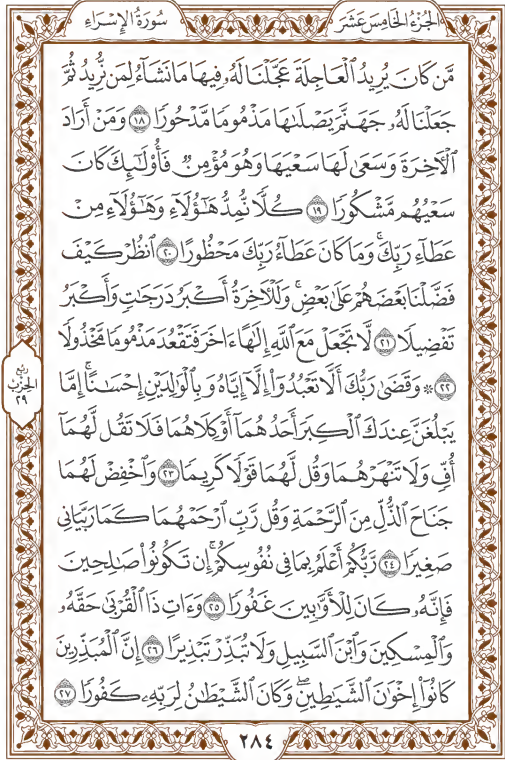 الجُزْءُ الخَامِسَ عَشَرَ
سُورَةُ الإِسْرَاءِ
مَّن كَانَ يُرِيدُ ٱلْعَاجِلَةَ عَجَّلْنَا لَهُۥ فِيهَا مَا نَشَآءُ لِمَن نُّرِيدُ ثُمَّ
جَعَلْنَا لَهُۥ جَهَنَّمَ يَصْلَىٰهَا مَذْمُومًا مَّدْحُورًا ١٨ وَمَنْ أَرَادَ
ٱلْـَٔاخِرَةَ وَسَعَىٰ لَهَا سَعْيَهَا وَهُوَ مُؤْمِنٌ فَأُو۟لَـٰٓئِكَ كَانَ
سَعْيُهُم مَّشْكُورًا ١٩ كُلًّا نُّمِدُّ هَـٰٓؤُلَآءِ وَهَـٰٓؤُلَآءِ مِنْ
عَطَآءِ رَبِّكَ ۚ وَمَا كَانَ عَطَآءُ رَبِّكَ مَحْظُورًا ٢٠ ٱنظُرْ كَيْفَ
فَضَّلْنَا بَعْضَهُمْ عَلَىٰ بَعْضٍ ۚ وَلَلْـَٔاخِرَةُ أَكْبَرُ دَرَجَـٰتٍ وَأَكْبَرُ
تَفْضِيلًا ٢١ لَّا تَجْعَلْ مَعَ ٱللَّهِ إِلَـٰهًا ءَاخَرَ فَتَقْعُدَ مَذْمُومًا مَّخْذُولًا
٢٢ ۞ وَقَضَىٰ رَبُّكَ أَلَّا تَعْبُدُوٓا۟ إِلَّآ إِيَّاهُ وَبِٱلْوَٰلِدَيْنِ إِحْسَـٰنًا ۚ إِمَّا
يَبْلُغَنَّ عِندَكَ ٱلْكِبَرَ أَحَدُهُمَآ أَوْ كِلَاهُمَا فَلَا تَقُل لَّهُمَآ
أُفٍّ وَلَا تَنْهَرْهُمَا وَقُل لَّهُمَا قَوْلًا كَرِيمًا ٢٣ وَٱخْفِضْ لَهُمَا
جَنَاحَ ٱلذُّلِّ مِنَ ٱلرَّحْمَةِ وَقُل رَّبِّ ٱرْحَمْهُمَا كَمَا رَبَّيَانِى
صَغِيرًا ٢٤ رَّبُّكُمْ أَعْلَمُ بِمَا فِى نُفُوسِكُمْ ۚ إِن تَكُونُوا۟ صَـٰلِحِينَ
فَإِنَّهُۥ كَانَ لِلْأَوَّٰبِينَ غَفُورًا ٢٥ وَءَاتِ ذَا ٱلْقُرْبَىٰ حَقَّهُۥ
وَٱلْمِسْكِينَ وَٱبْنَ ٱلسَّبِيلِ وَلَا تُبَذِّرْ تَبْذِيرًا ٢٦ إِنَّ ٱلْمُبَذِّرِينَ
كَانُوٓا۟ إِخْوَٰنَ ٱلشَّيَـٰطِينِ ۖ وَكَانَ ٱلشَّيْطَـٰنُ لِرَبِّهِۦ كَفُورًا ٢٧
ربع
الحزب
٢٩
٢٨٤